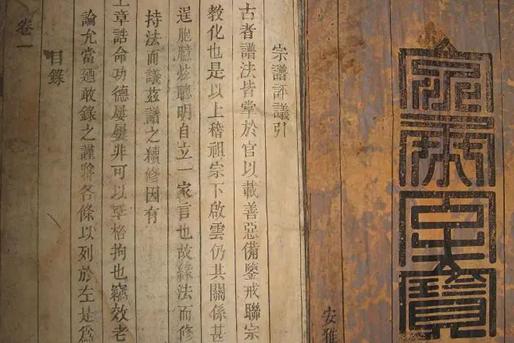 寶
安雅
宗譜評議引
古者譜法皆掌於官以載善惡備鑒戒聯宗
教化也是以上稽祖宗下啟雲仍其關係甚
逞胸臆炫聰明自立一家言也故緣法而修
持法而議茲譜之續修因有
章誥命功德屢屢非可以章格拘也竊效老
論允當廼敢錄之謹將各條以列於左是爲
目錄
卷一